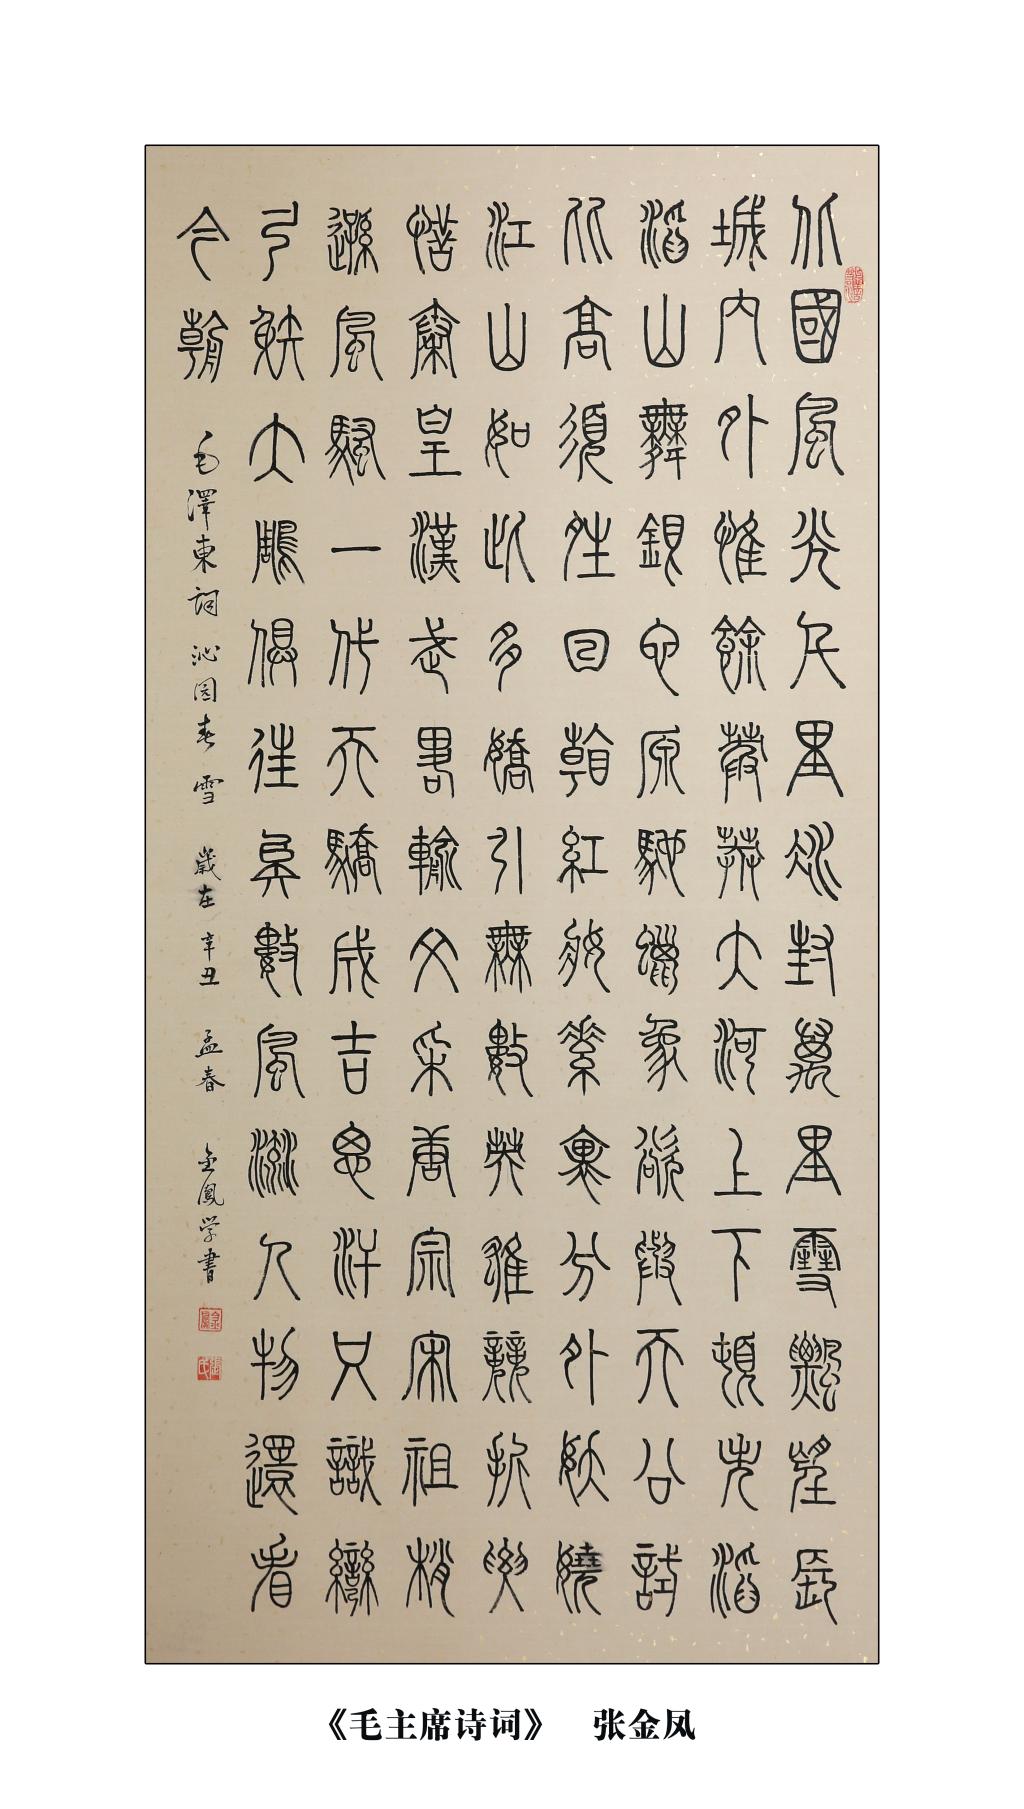 北國風光千里冰封萬里雪飄望長
城内外惟餘莽莽大河上下頓失滔
滔山舞銀蛇原馳蠟象欲與天公試
比高須晴日看紅裝素裹分外妖嬈
江山如此多嬌引無數英雄競折腰
惜秦皇漢武略輸文采唐宗宋祖稍
遜風騷一代天驕成吉思汗只識彎
弓射大鵰俱往矣數風流人物還看
今朝 毛澤東詞 沁园春 雪 歲在辛丑 孟春 金鳳学書
《毛主席诗词》 张金凤